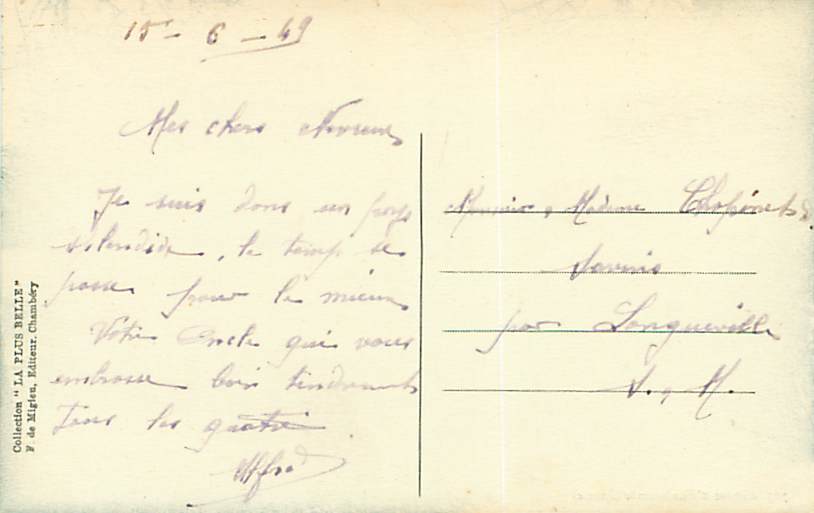 15 - 6 - 49
Mes chers Neveux
Je suis dans un pays
splendide, le temps se
passe pour le mieux
Votre Oncle qui vous
embrasse bien tendrement
Tous les quatre
Alfred
Monsieur, Madame
Savins
par Longueville
S. M.
Collection "LA PLUS BELLE"
F. de Migieu, Editeur, Chambéry